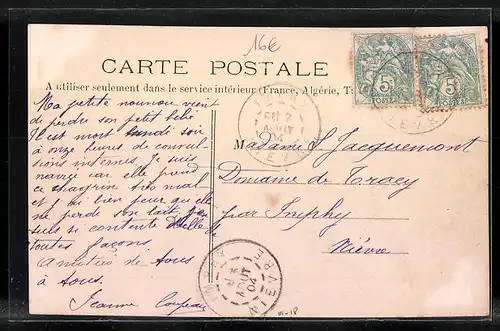 16€
CARTE POSTALE
A utiliser seulement dans le service intérieur (France, Algérie, T
Ma petite nounou vient
de perdre son petit bébé
Il est mort lundi soir
à onze heures de convul
sions internes. Je suis
navré car elle prend
ce chagrin très mal
et j'ai bien peur qu'elle
ne perde son lait, j'en
suis si contente d'elle de
toutes façons.
Amitiés de tous
à tous.
Jeanne
Madame S. Jacquemont
Domaine de Tracy
par Imphy
Nièvre
5c
POSTES
5c
POSTES
AOUT
NIEVRE
AOUT
04
NIEVRE